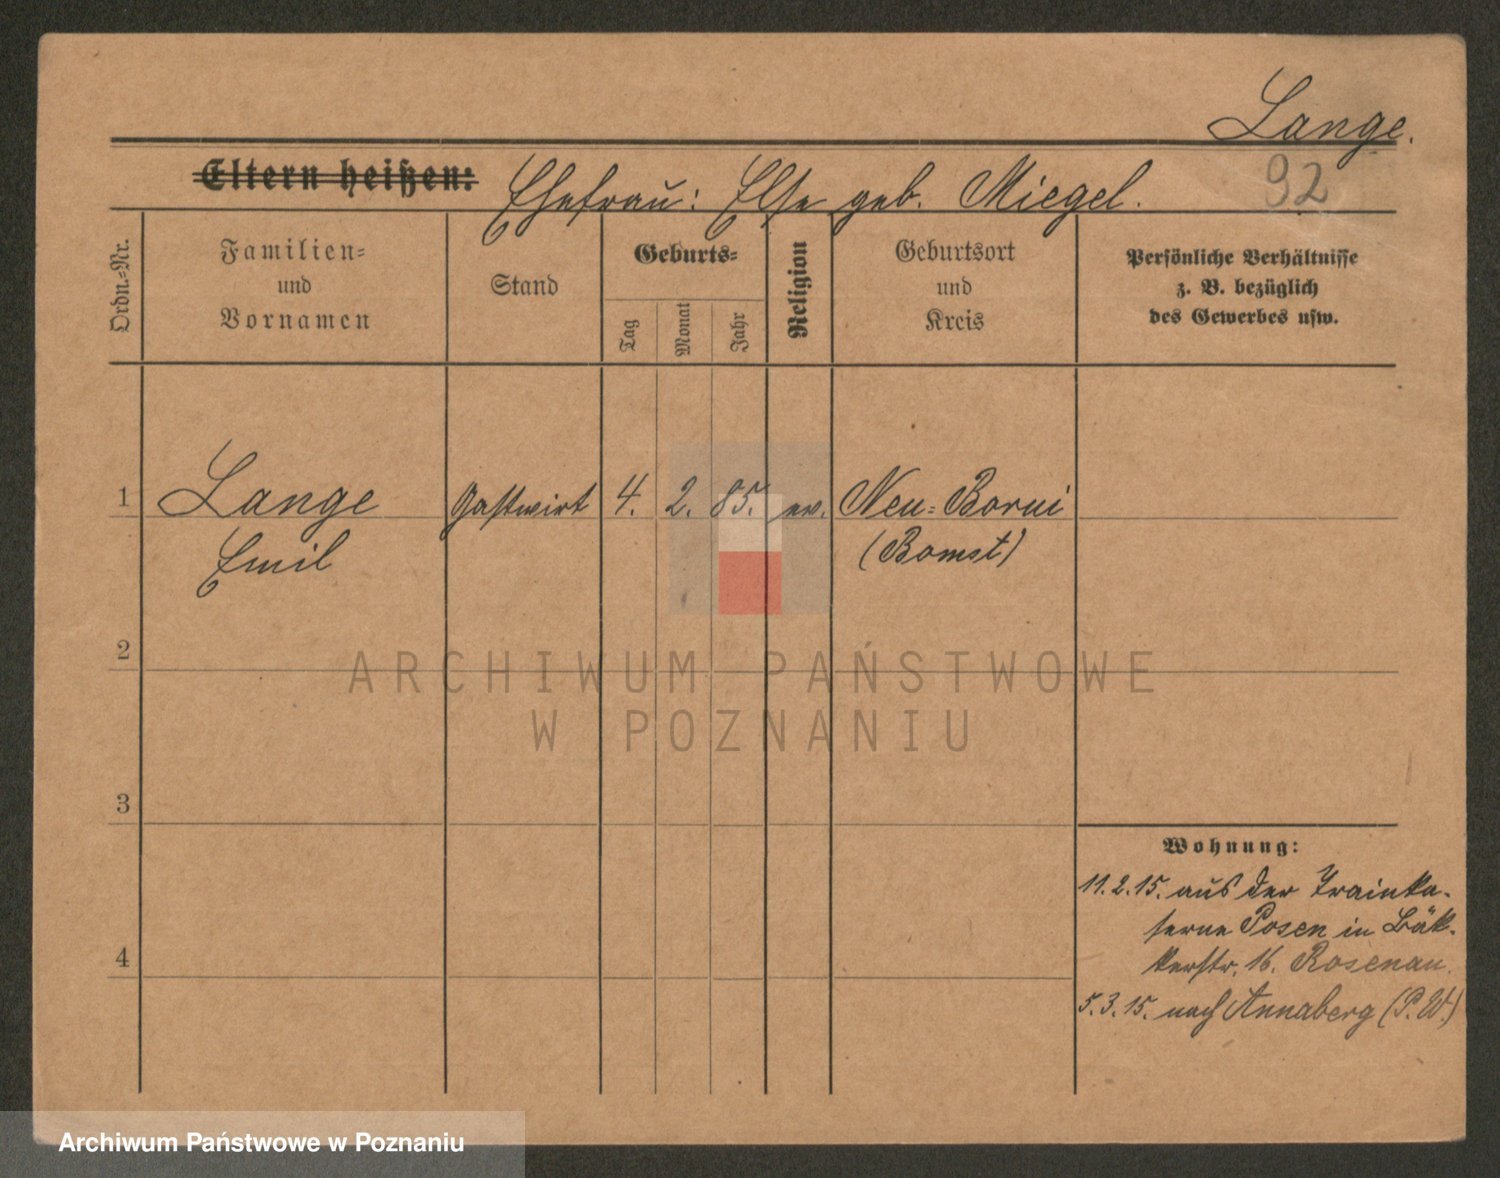 Lange.
Eltern heißen: Ehefrau: Else geb. Miegel.
92
Ordn.-Nr.
Familien-
und
Vornamen
Stand
Geburts-
Tag
Monat
Jahr
Religion
Geburtsort
und
Kreis
Persönliche Verhältnisse
z. B. bezüglich
des Gewerbes usw.
1 Lange Gastwirt 4. 2. 85. ev. Neu-Borui
Emil (Bomst)
2
3
4
Wohnung:
11.2.15. aus der Trainka-
serne Posen in Bäk-
kerstr. 16. Rosenau.
5.3.15. nach Annaberg (P.W.)
ARCHIWUM PAŃSTWOWE
W POZNANIU
Archiwum Państwowe w Poznaniu